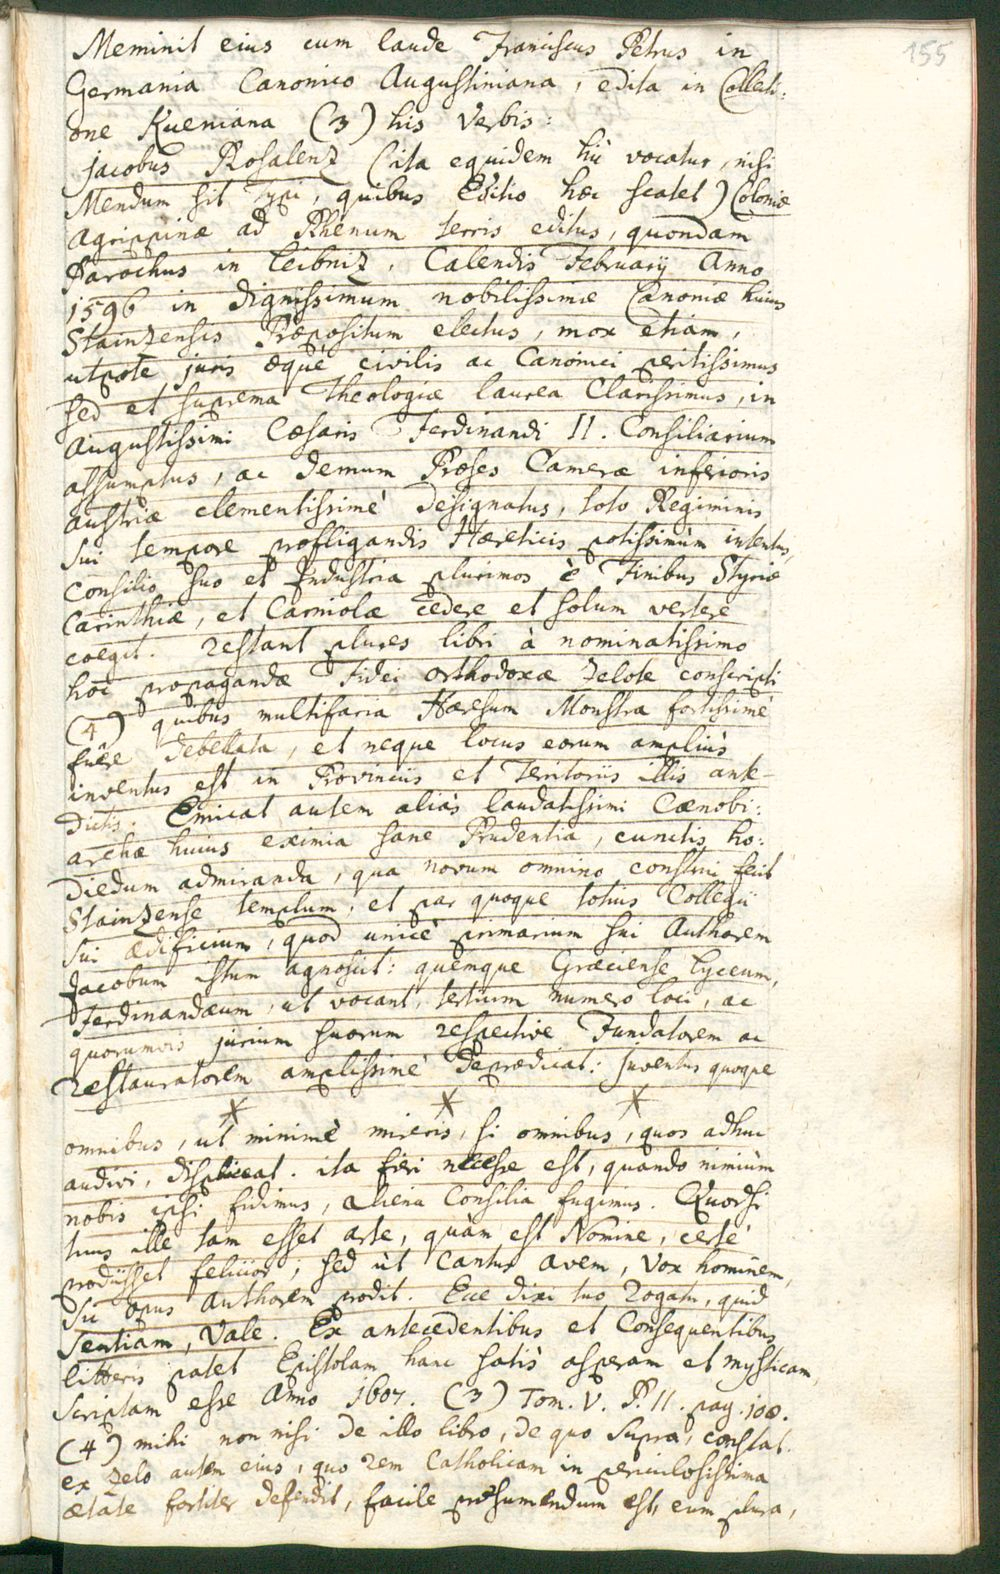 155
Meminit eius cum laude Franciscus Petrus in
Germania Canonico Augustiniana, edita in Collecti:
one Kueniana (3) his Verbis:
Jacobus Rosalenz (ita equidem hic vocatur, nisi
Mendum sit Typi, quibus Editio hæc scatet) Coloniæ
Agrippinæ ad Rhenum terris editus, quondam
Parochus in Leibniz, Calendis February Anno
1596 in dignissimum nobilissimæ Canoniæ huius
Stainzensis Præpositum electus, mox etiam,
utpote juris æquè civilis ac Canonici peritissimus
sed et suprema Theologiæ laurea Clarissimus, in
Augustissimi Cæsaris Ferdinandi II. Consiliarium
assumptus, ac demum Præses Cameræ inferioris
Austriæ clementissimè designatus, toto Regiminis
sui tempore profligandis Hæreticis potissimùm intentus,
Consilio suo et Industria plurimos è Finibus Styriæ
Carinthiæ, et Carniolæ cedere et solum vertere
coegit. restant plures libri à nominatissimo
hoc propagandæ Fidei orthodoxæ Zelote conscripti
(4) quibus multifaria Hæresum Monstra fortissimè
fuêre debellata, et neque locus eorum ampliùs
inventus est in Provinciis et Territoriis illis ante-
dictis. Emicat autem aliàs laudatissimi Cænobi:
archæ huius eximia sane Prudentia, cunctis ho:
diedum admiranda, qua novum omnino construi fecit
Stainzense templum, et par quoque totius Collegii
sui ædificium, quod unicè primarium sui Authorem
Jacobum istum agnoscit: quemque Græciense Lyceum,
Ferdinandæum, ut vocant, tertium numero loci, ac
quorumvis jurium suorum respective Fundatorem ac
restauratorem amplissimè deprædicat: Juventus quoque
* * *
omnibus, ut minimè mireris, si omnibus, quos adhuc
audivi, displiceat. ita fieri necesse est, quando nimiùm
nobis ipsi fidimus, aliena Consilia fugimus. Quodsi
tuus ille tam esset arte, quàm est Nomine, certè
prodiisset felicior; sed ùt Cantus avem, Vox hominem,
sic opus Authorem prodit. Ecce dixi tuo rogatu, quid
sentiam, Vale. Ex antecedentibus et Consequentibus
litteris patet Epistolam hanc satìs asperam et mysticam,
scriptam esse Anno 1607. (3) Tom. V. P. II. pag. 108.
(4) mihi non nisi de illo libro, de quo supra, constat.
ex zelo autem eius, quo rem Catholicam in periculosissima
ætate fortiter defendit, facile præsumendum est, eum plura,